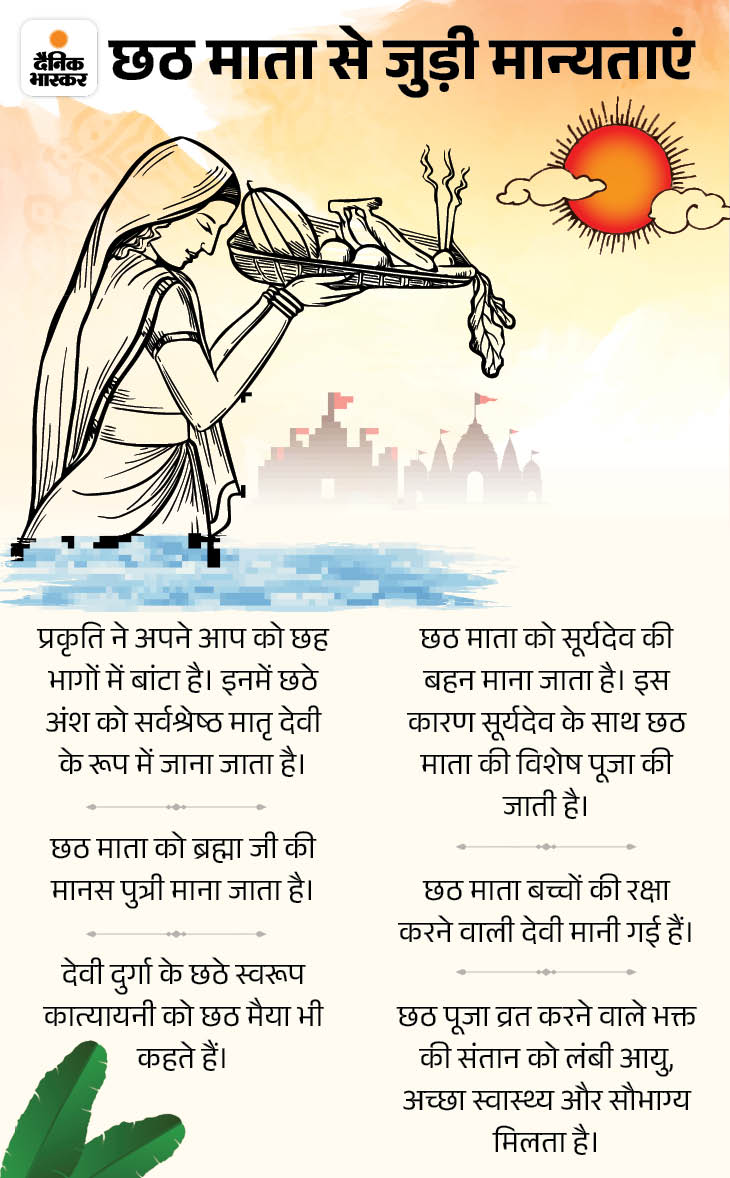 दैनिक
भास्कर
छठ माता से जुड़ी मान्यताएं
प्रकृति ने अपने आप को छह
भागों में बांटा है। इनमें छठे
अंश को सर्वश्रेष्ठ मातृ देवी
के रूप में जाना जाता है।
छठ माता को ब्रह्मा जी की
मानस पुत्री माना जाता है।
देवी दुर्गा के छठे स्वरूप
कात्यायनी को छठ मैया भी
कहते हैं।
छठ माता को सूर्यदेव की
बहन माना जाता है। इस
कारण सूर्यदेव के साथ छठ
माता की विशेष पूजा की
जाती है।
छठ माता बच्चों की रक्षा
करने वाली देवी मानी गई हैं।
छठ पूजा व्रत करने वाले भक्त
की संतान को लंबी आयु,
अच्छा स्वास्थ्य और सौभाग्य
मिलता है।